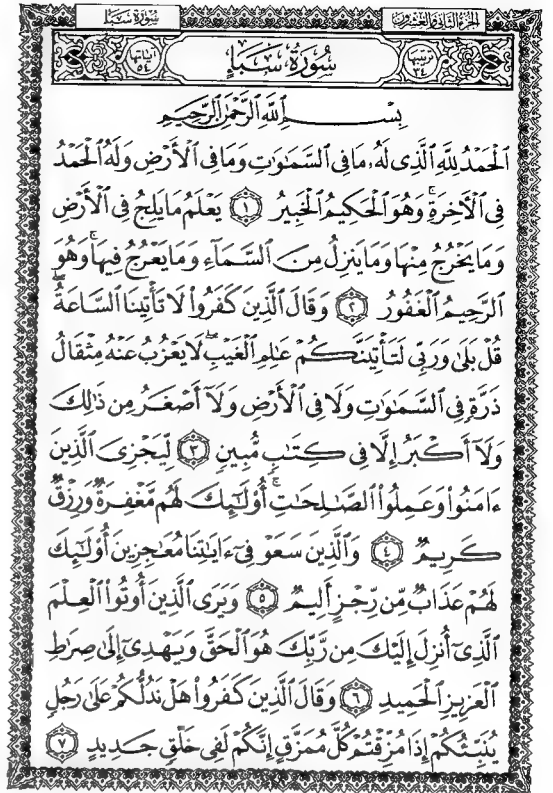 الجزء الثاني والعشرون
سورة سبإ
ترتيبها ٣٤
سُورَةُ سَبَإٍ
آياتها ٥٤
بِسْمِ اللَّهِ الرَّحْمَٰنِ الرَّحِيمِ
الْحَمْدُ لِلَّهِ الَّذِى لَهُۥ مَا فِى السَّمَٰوَٰتِ وَمَا فِى الْأَرْضِ وَلَهُ الْحَمْدُ
فِى الْأَخِرَةِۚ وَهُوَ الْحَكِيمُ الْخَبِيرُ ١ يَعْلَمُ مَا يَلِجُ فِى الْأَرْضِ
وَمَا يَخْرُجُ مِنْهَا وَمَا يَنزِلُ مِنَ السَّمَآءِ وَمَا يَعْرُجُ فِيهَاۚ وَهُوَ
الرَّحِيمُ الْغَفُورُ ٢ وَقَالَ الَّذِينَ كَفَرُوا۟ لَا تَأْتِينَا السَّاعَةُۖ
قُلْ بَلَىٰ وَرَبِّى لَتَأْتِيَنَّكُمْ عَٰلِمِ الْغَيْبِۖ لَا يَعْزُبُ عَنْهُ مِثْقَالُ
ذَرَّةٍ فِى السَّمَٰوَٰتِ وَلَا فِى الْأَرْضِ وَلَآ أَصْغَرُ مِن ذَٰلِكَ
وَلَآ أَكْبَرُ إِلَّا فِى كِتَٰبٍ مُّبِينٍ ٣ لِّيَجْزِىَ الَّذِينَ
ءَامَنُوا۟ وَعَمِلُوا۟ الصَّٰلِحَٰتِۚ أُو۟لَٰٓئِكَ لَهُم مَّغْفِرَةٌ وَرِزْقٌ
كَرِيمٌ ٤ وَالَّذِينَ سَعَوْ فِىٓ ءَايَٰتِنَا مُعَٰجِزِينَ أُو۟لَٰٓئِكَ
لَهُمْ عَذَابٌ مِّن رِّجْزٍ أَلِيمٌ ٥ وَيَرَى الَّذِينَ أُوتُوا۟ الْعِلْمَ
الَّذِىٓ أُنزِلَ إِلَيْكَ مِن رَّبِّكَ هُوَ الْحَقَّ وَيَهْدِىٓ إِلَىٰ صِرَٰطِ
الْعَزِيزِ الْحَمِيدِ ٦ وَقَالَ الَّذِينَ كَفَرُوا۟ هَلْ نَدُلُّكُمْ عَلَىٰ رَجُلٍ
يُنَبِّئُكُمْ إِذَا مُزِّقْتُمْ كُلَّ مُمَزَّقٍ إِنَّكُمْ لَفِى خَلْقٍ جَدِيدٍ ٧